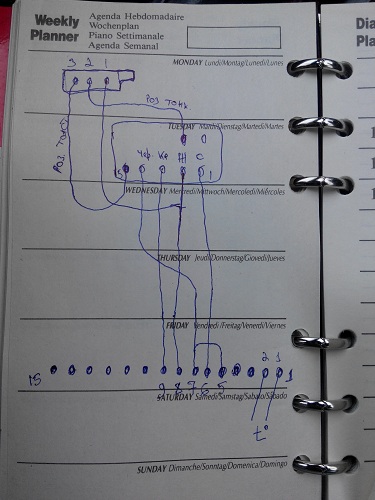 Weekly
Planner
Agenda Hebdomadaire
Wochenplan
Piano Settimanale
Agenda Semanal
Dia
Pla
MONDAY Lundi/Montag/Lunedì/Lunes
3 2 1
роз тонк
TUESDAY Mardi/Dienstag/Martedì/Martes
роз толс
чер
кр
1
WEDNESDAY Mercredi/Mittwoch/Mercoledì/Miércoles
THURSDAY Jeudi/Donnerstag/Giovedì/Jueves
FRIDAY Vendredi/Freitag/Venerdì/Viernes
2 1
15
9 8 7 6 5
1
SATURDAY Samedi/Samstag/Sabato/Sábado
t°
SUNDAY Dimanche/Sonntag/Domenica/Domingo